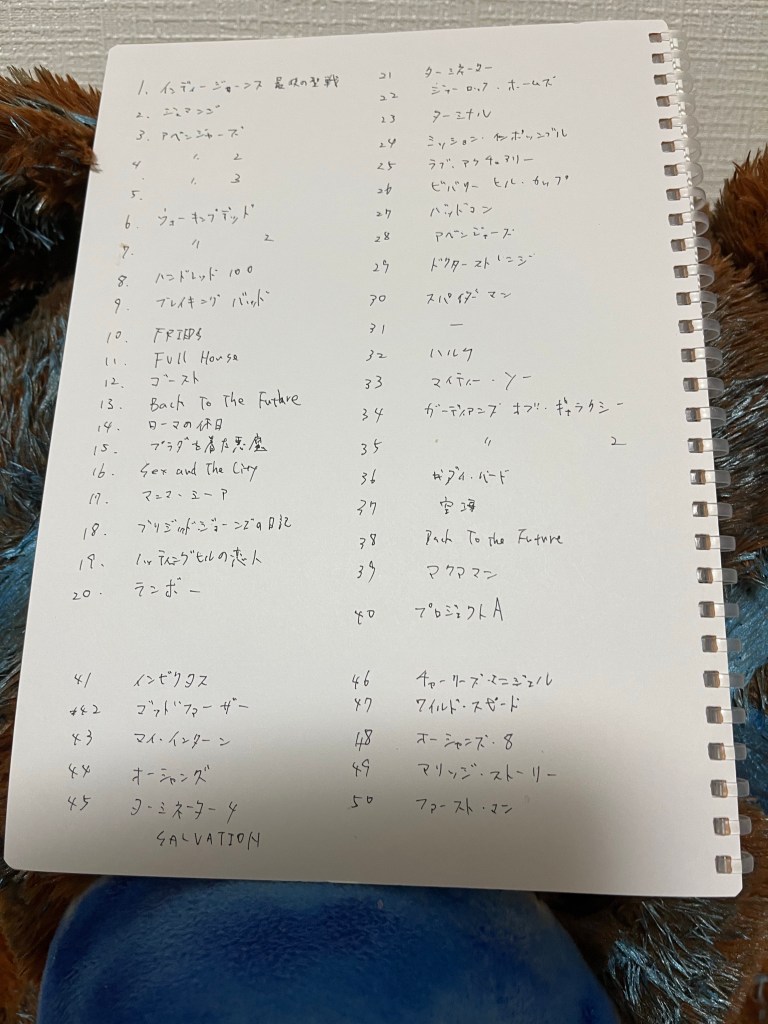 1. インディージョーンズ 最後の聖戦
2. ジュマンジ
3. アベンジャーズ
4 〃 2
5. 〃 3
6. ウォーキングデッド
7. 〃 2
8. ハンドレッド 100
9. ブレイキング バッド
10.
11. Full House
12. ゴースト
13. Back To The Future
14. ローマの休日
15. プラダを着た悪魔
16. Sex and The City
17. マンマ・ミーア
18. ブリジッドジョーンズの日記
19. ノッティングヒルの恋人
20. ランボー
21 ターミネーター
22 シャーロック・ホームズ
23 ターミナル
24 ミッション・インポッシブル
25 ラブ・アクチュアリー
26 ビバリー ヒル・カップ
27 バッドマン
28 アベンジャーズ
29 ドクターストレンジ
30 スパイダーマン
31 ー
32 ハルク
33 マイティー・ソー
34 ガーディアンズ オブ・ギャラクシー
35 〃 2
36 レディ・バード
37 空海
38 Back To the Future
39 アクアマン
40 プロジェクトA
41 インセプクス
42 ゴッドファーザー
43 マイ・インターン
44 オーシャンズ
45 ターミネーター4
SALVATION
46 チャーリーズ・エンジェル
47 ワイルド・スピード
48 オーシャンズ・8
49 マリッジ・ストーリー
50 ファースト・マン